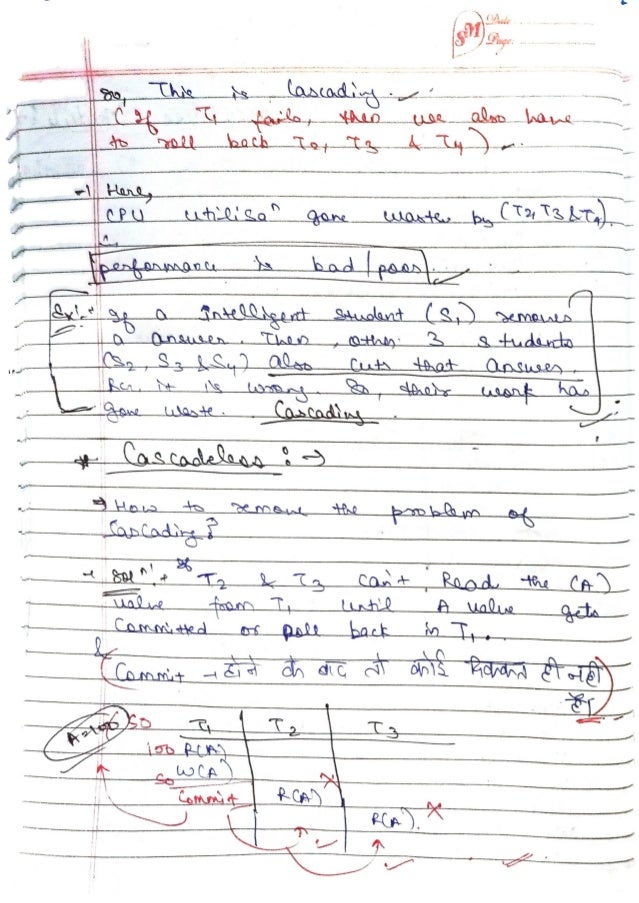 SM Date
Page.
so, This is Cascading.
(If T1 fails, then we also have
to roll back T2, T3 & T4)
→ Here,
CPU utilisaⁿ gone waste by (T2, T3 & T4).
performance is bad/poor
Ex:- If a Intelligent student (S1) removes
a answer. Then, other 3 students
(S2, S3 & S4) also cuts that answer.
Bcz it is wrong. So, their work has
gone waste. Cascading.
* Cascadeless :→
⇒ How to remove the problem of
Cascading?
→ solⁿ:→ * T2 & T3 can't Read the (A)
value from T1 until A value gets
Committed or Roll back in T1.
& (Commit → होने के बाद तो कोई दिक्कत ही नही
है)
A=100 50 T1 T2 T3
100 R(A)
50 W(A)
Commit R(A) ×
R(A). ×